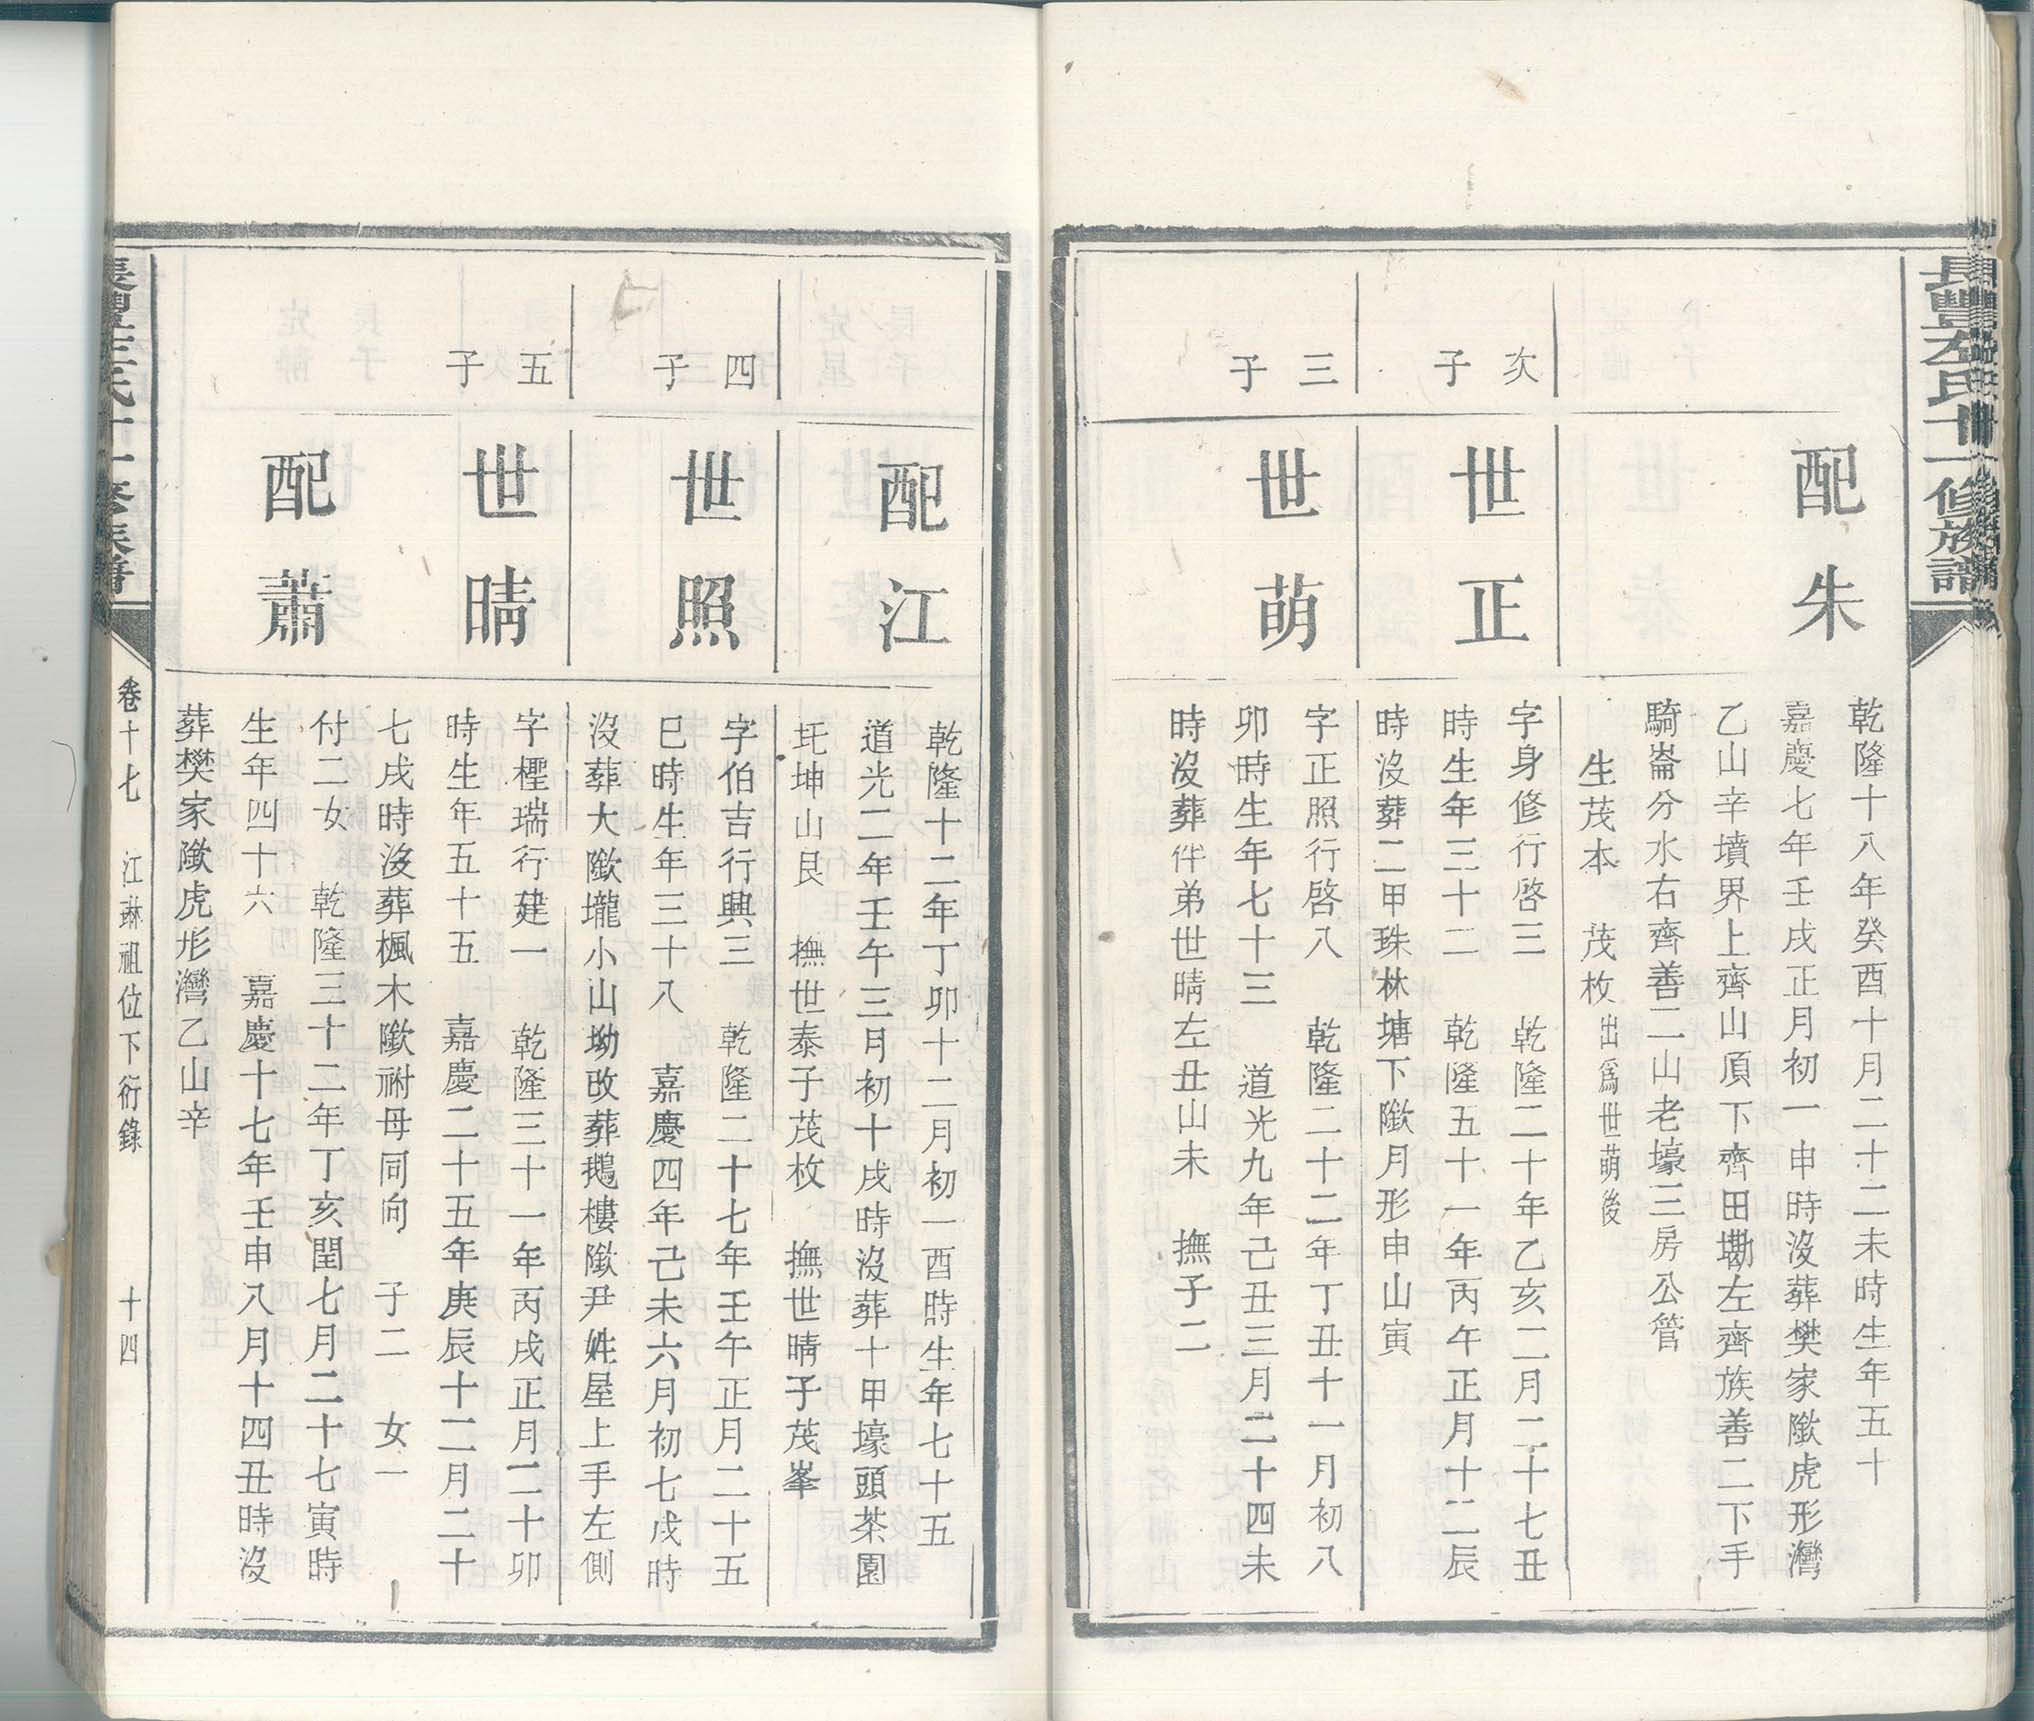 長豐左氏十一修族譜
配朱
乾隆十八年癸酉十月二十二未時生年五十
嘉慶七年壬戌正月初一申時沒葬樊家隞虎形灣
乙山辛墳界上齊山頂下齊田墈左齊族善二下手
騎崙分水右齊善二山老壕三房公管
生茂本 茂枚出爲世萌後
次子
世正
字身修行啓三 乾隆二十年乙亥二月二十七丑
時生年三十二 乾隆五十一年丙午正月十二辰
時沒葬二甲珠林塘下隞月形申山寅
三子
世萌
字正照行啓八 乾隆二十二年丁丑十一月初八
卯時生年七十三 道光九年己丑三月二十四未
時沒葬伴弟世晴左丑山未 撫子二
配江
乾隆十二年丁卯十二月初一酉時生年七十五
道光二年壬午三月初十戌時沒葬十甲壕頭茶園
坵坤山艮 撫世泰子茂枚 撫世晴子茂峯
四子
世照
字伯吉行興三 乾隆二十七年壬午正月二十五
巳時生年三十八 嘉慶四年己未六月初七戌時
沒葬大隞壠小山坳改葬鵝樓隞尹姓屋上手左側
五子
世晴
字檉瑞行建一 乾隆三十一年丙戌正月二十卯
時生年五十五 嘉慶二十五年庚辰十二月二十
七戌時沒葬楓木隞祔母同向 子二 女一
配蕭
付二女 乾隆三十二年丁亥閏七月二十七寅時
生年四十六 嘉慶十七年壬申八月十四丑時沒
葬樊家隞虎形灣乙山辛
長豐左氏十一修族譜
卷十七 江琳祖位下衍錄 十四